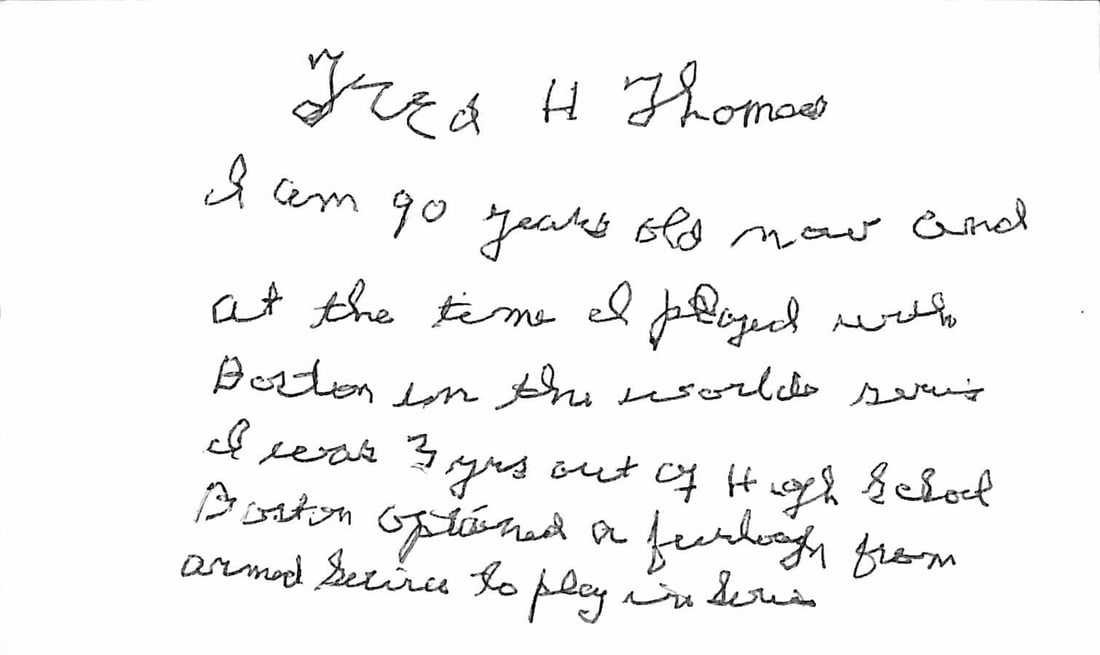 Fred H Thomas
I am 90 years old now and
at the time I played with
Boston in the worlds series
I was 3 yrs out of High School
Boston optained a furlough from
armed Service to play in Series